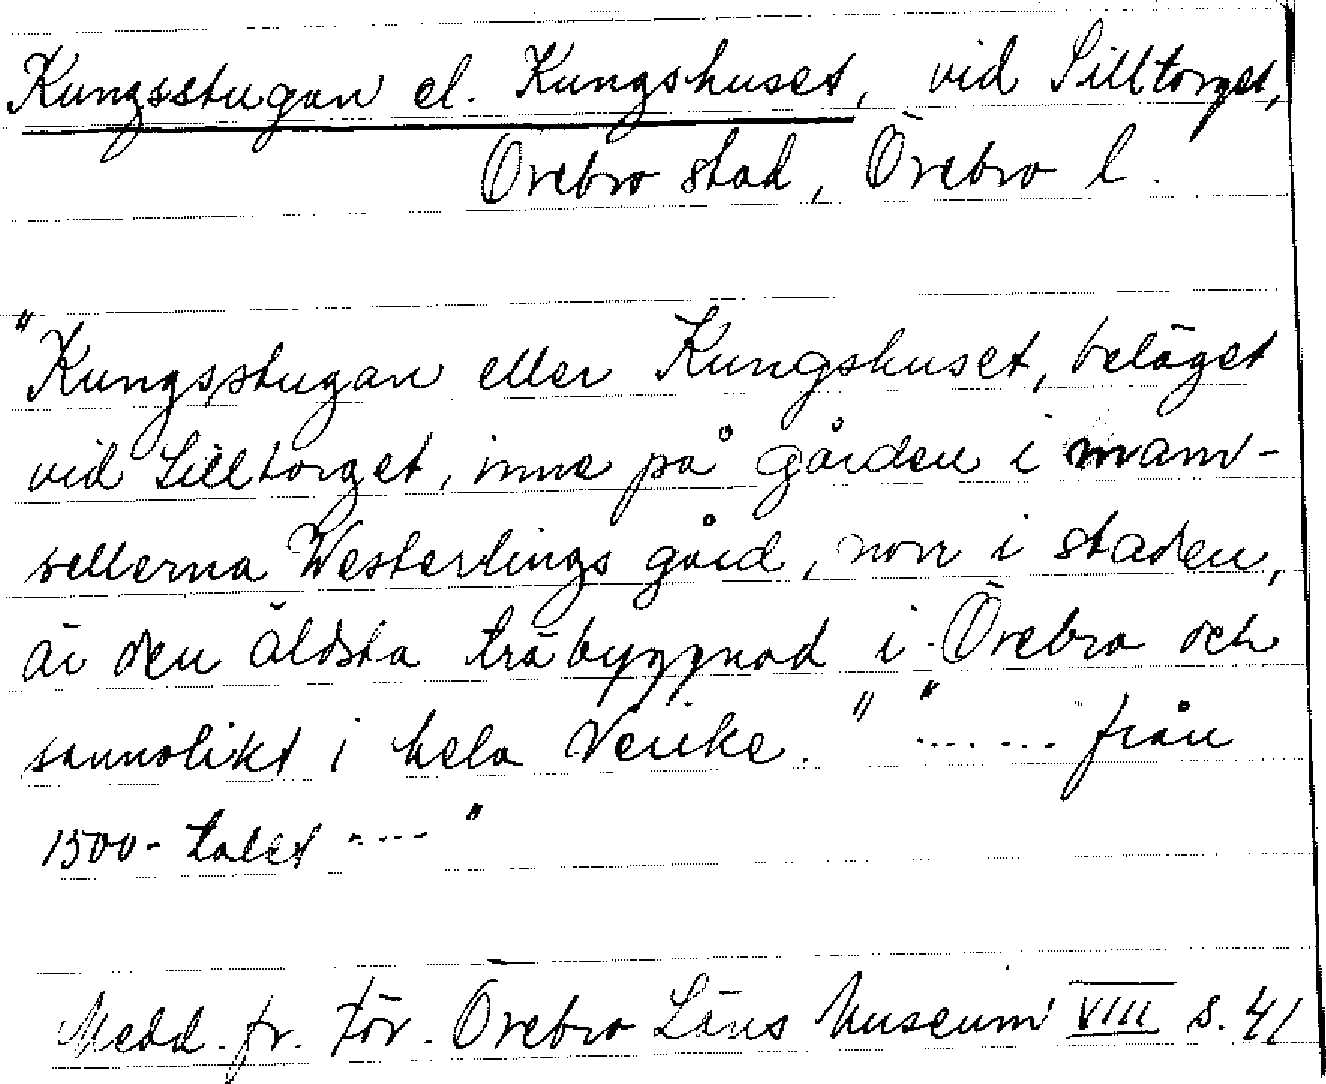 Kungsstugan el. Kungshuset, vid Silltorget,
Örebro stad, Örebro l.
"Kungsstugan eller Kungshuset, beläget
vid Silltorget, inne på gården i mam-
sellerna Westerlings gård, norr i staden,
är den äldsta träbyggnad i Örebro och
sannolikt i hela Nerike." "....... från
1500-talet ----"
Medd. fr. För. Örebro Läns Museum VIII s. 41